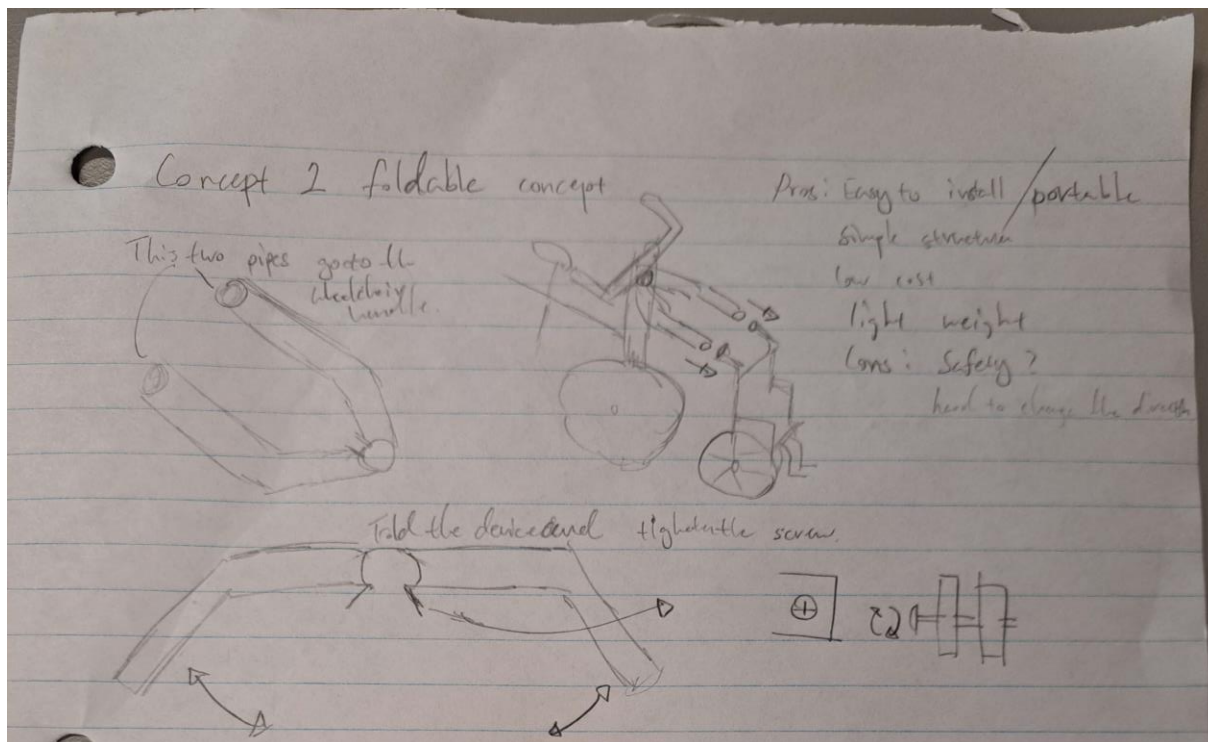 Concept 2 foldable concept
This two pipes goto th
wheelchair
handle.
Pros: Easy to install / portable
simple structure
low cost
light weight
Cons: Safety?
hard to change the
Fold the device and tighten the screw.